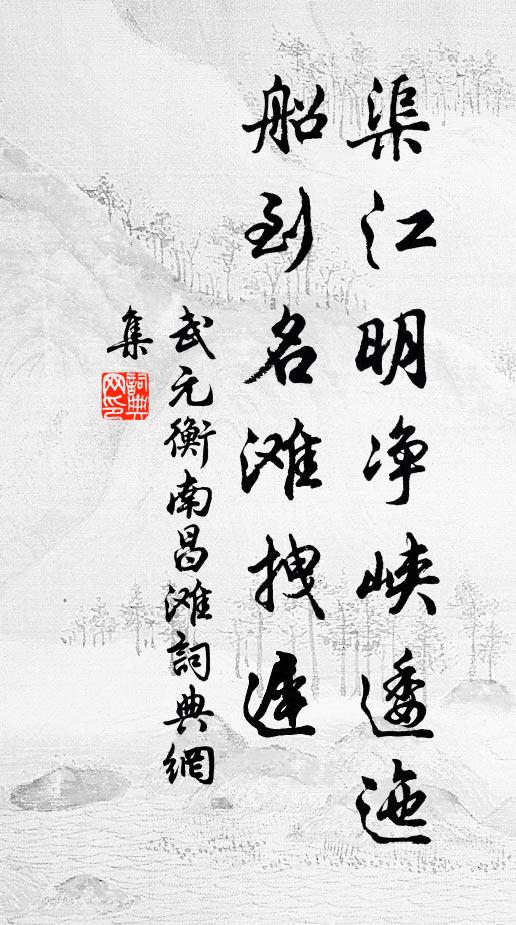 渠江明净峡逶迤
船到名滩拽𢌞迟
武元衡南昌滩詞典網
集
詞典网印